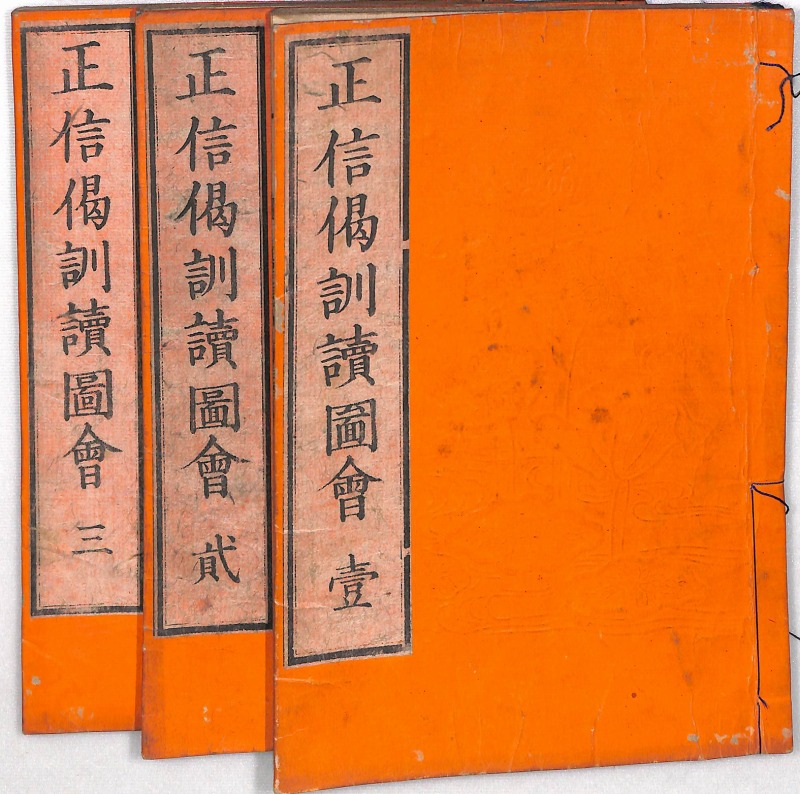 正信偈訓讀圖會 壹
正信偈訓讀圖會 貳
正信偈訓讀圖會 三